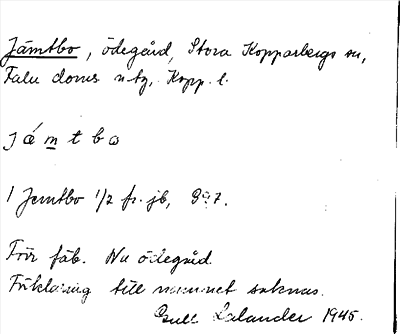 Jämtbo, ödegård, Stora Kopparbergs sn,
Falu doms ntg, Kopp. l.
já m t b ω
1 Jemtbo 1/2 fr. jb,
Förr fäb. Nu ödegård
Förklaring till namnet saknas.
Gull Lalander 1945.